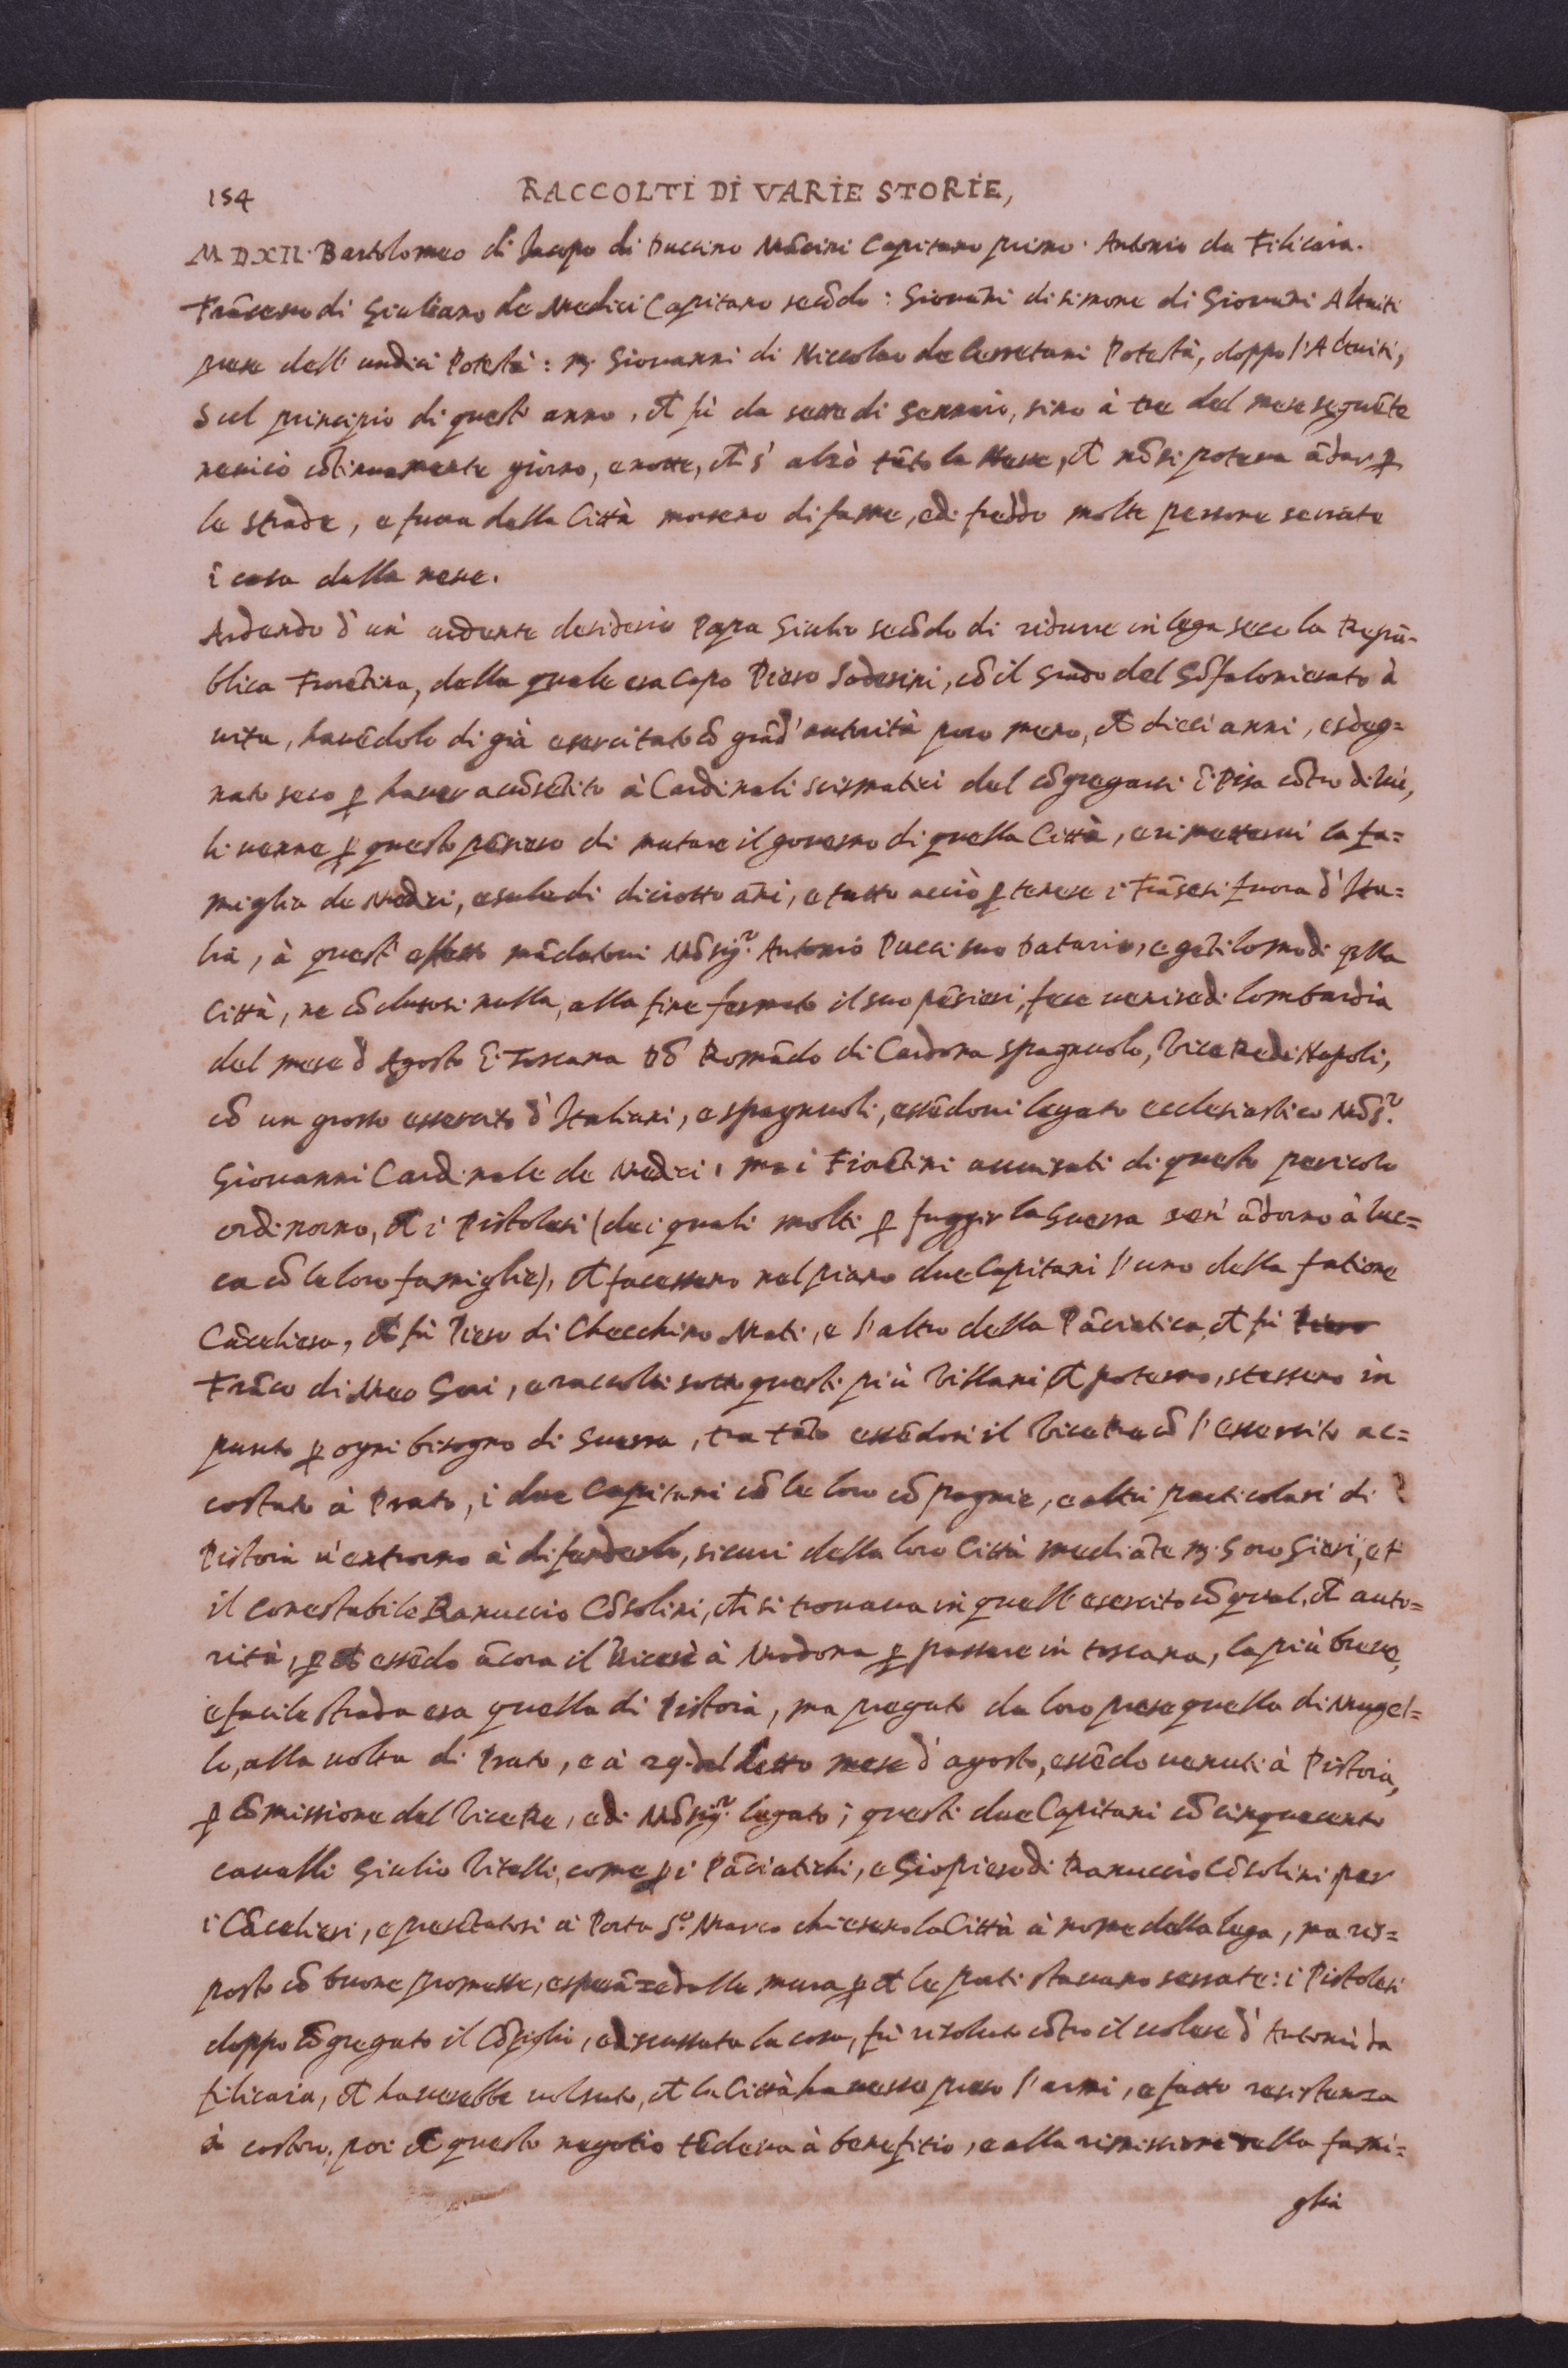 154 RACCOLTI DI VARIE STORIE,
MDXII. Bartolomeo di Jacopo di Duccino Mãcini Capitano primo. Antonio da Filicaia.
Frãcesco di Giuliano de Medici Capitano secõdo: Giovãni di simone di Giovãni Altuiti
prese dell' undici Potestà: M. Giouanni di Niccolao de Cerretani Potestà, doppo l'Altuiti,
Sul principio di quest' anno, ch fù da sette di Gennaio, sino à tre del mese seguẽte
neuicò cõtinuamente giorno, e notte, ch s' alzò tãto la Neue, ch nõ si poteua ãdar p
le strade, e fuora della Città morseno di fame, e di freddo molte persone serrate
ĩ casa dalla neue.
Ardendo d' un' ardente desiderio Papa Giulio secõdo di ridurre in lega seco la Repu-
blica Fiorẽtina, della quale era Capo Piero Soderini, cõ il Grado del Gõfalonierato à
uita, hauẽdolo di già esercitato cõ grãd' autorità poco meno, ch dieci anni, esdeg=
nato seco p hauer acõsẽtito à Cardinali scismatici del cõgregarsi ĩ Pisa cõtro di lui,
li uenne p questo pẽsiero di mutare il gouerno di quella Città, e rimetterui la fa=
miglia de Medici, esule di diciotto ãni, e tutto acciò p tenere i Frãsesi fuora d' Ita=
lia, à quest' effetto mãdatoui Mõsig.r Antonio Pucci suo Datario, e gẽtilomo di qlla
Città, ne cõclusosi nulla, alla fine fermato il suo pẽsieri, fece uenire di Lombardia
del mese d Agosto ĩ Toscana Dõ Romãdo di Cardona spagnuolo, Vice Re di Napoli,
cõ un grosso essercito d' Italiani, e spagnuoli, essẽdoui legato ecclesiastico Mõs.r
Giouanni Cardinale de Medici, ma i Fiorẽtini auuisati di questo pericolo
ordinorno, ch i Pistolesi (de i quali molti p fuggir la Guerra sen' ãdorno à Luc=
ca cõ le loro famiglie), ch facessero nel piano due Capitani l' uno della fatione
Cãceliera, ch fù Piero di Checchino Mati, e l'altro della Pãciatica, ch fù Piero
Frãco di Meo Gori, e raccolti sotto questi più Villani ch poterno, stessero in
punto p ogni bisogno di Guerra, tra tãto essẽdosi il Vice Re cõ l' essercito ac=
costato à Prato, i due Capitani cõ le loro cõpagnie, e altri particolari di
Pistoia u' entrorno à difenderlo, sicuri della loro Città mediãte M. Goro Gieri, et
il Conestabile Ranuccio Cõsolini, ch si trouaua in quell' esercito cõ qual, ch auto=
rità, p ch essẽdo ãcora il Vicerè à Modona p passare in toscana, la più breve,
e facile strada era quella di Pistoia, ma pregato da loro prese quella di Mugel=
lo, alla uolta di Prato, e à 29. del detto mese d' agosto, essẽdo uenuti à Pistoia,
p cõmissione del Vice Re, e di Mõsig.r legato; questi due Capitani cõ cinquecento
caualli Giulio Vitelli, come p i Pãciatichi, e Giopiero di Ranuccio Cõsolini per
i Cãcelieri, e presẽtatosi à Porta S.o Marco chiesero la Città à nome della lega, ma ris=
posto cõ buone promesse, e sperãze dalle mura p ch le porti stauano serrate: i Pistolesi
doppo cõgregato il Cõsiglio, e discussata la cosa, fù risoluto cõtro il uolere d' Antonio da
filicaia, ch hauerebbe uolsuto, ch la Città hauesse preso l' armi, e fatto resistenza
à costoro, poi ch questo negotio tẽdeua à benefitio, e alla rimissione della fami=
glia